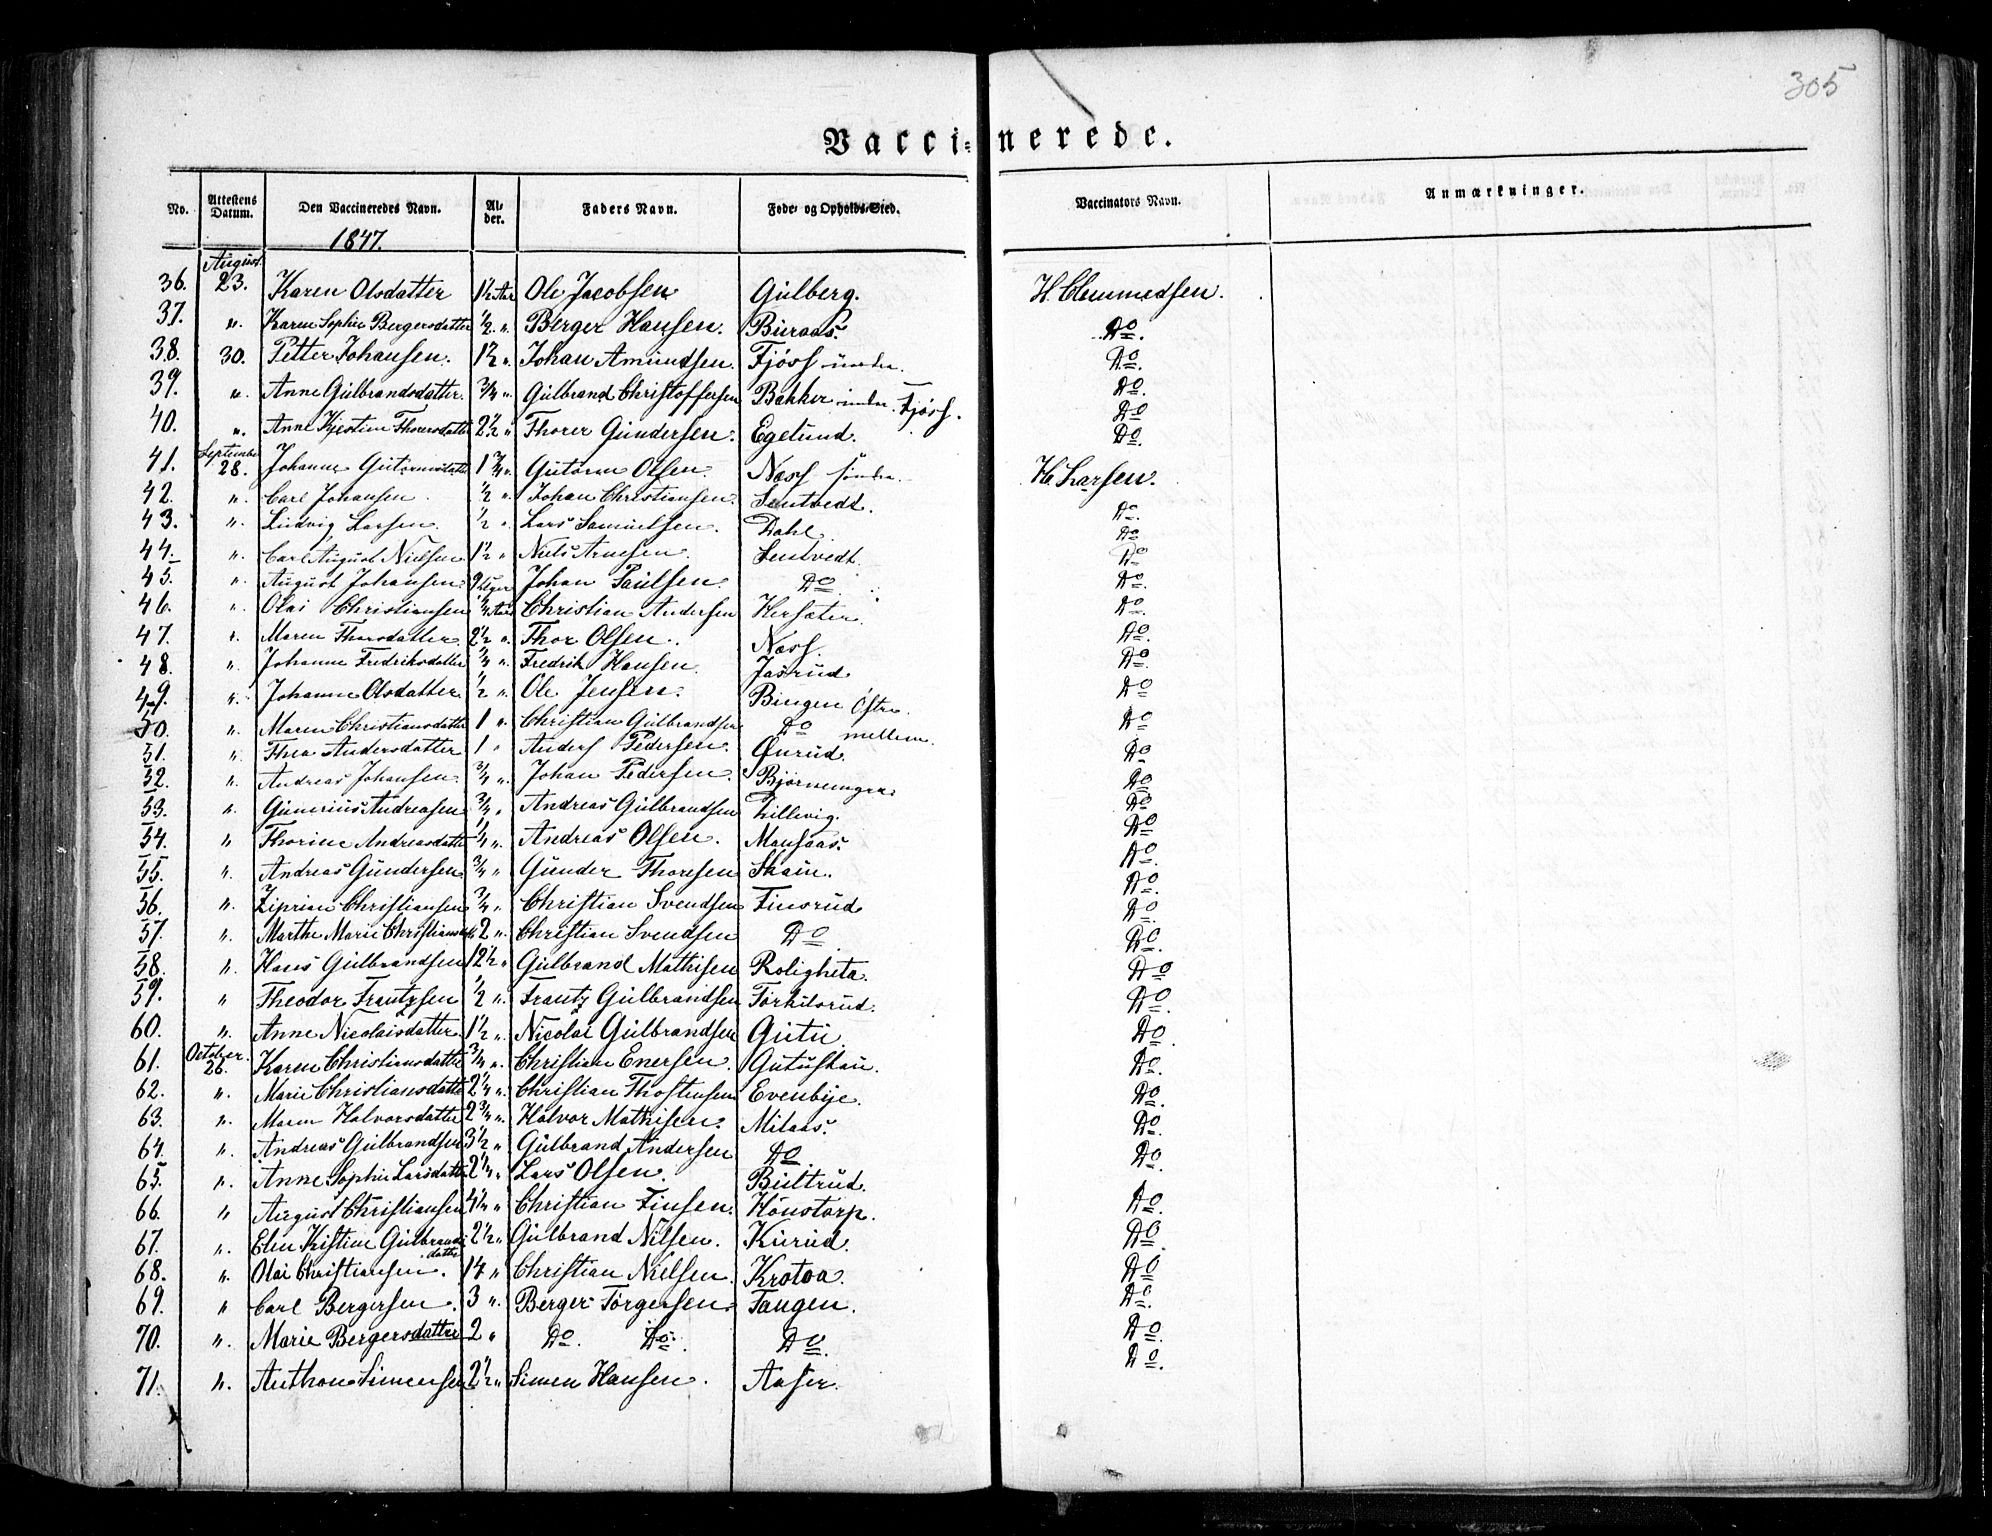 305
Vacci=nerede.
No. Attestens Datum. Den Vaccineredes Navn. Al-der. Faders Navn. Føde- og Opholds-Sted. Vaccinators Navn. Anmærkninger.
1847.
August
36. 23. Karen Olsdatter 1½ Aar Ole Jacobsen Gulberg. H. Clemmedsen.
37. " Karen Sophie Bergersdatter ½ " Berger Hansen. Buraas. Do.
38. 30. Petter Johansen. 1½ " Johan Amundsen Fjøss Do.
39. " Anne Gulbrandsdatter. ¾ " Gulbrand Christoffersen Bakker Fjøss. Do
40. " Anne Kjestine Thorersdatter 2½ " Thorer Gundersen. Egelund. Do
Do.
September
41. 28. Johanne Gutormsdatter 1¾ " Gutorm Olsen. Næss søndre. H. Larsen.
42. " Carl Johansen ½ " Johan Christiansen. Sentvedt. Do.
43. " Ludvig Larsen. ½ " Lars Samuelsen. Dahl. Do
44. " Carl August Nielsen 1½ " Niels Arnesen. Sentvedt. Do
45. " August Johansen 9 Uger Johan Paulsen Do Do.
46. " Olai Christiansen ¼ Aar Christian Andersen Hersæter. Do.
47. " Maren Thorsdatter 2½ " Thor Olsen. Næss. Do.
48. " Johanne Fredriksdatter ¼ " Fredrik Hansen Jasrud Do
49. " Johanne Olsdatter ½ " Ole Jensen. Bingen Østre. Do
50. " Maren Christiansdatter 1 " Christian Gulbrandsen Do mellem. Do
51. " Thea Andersdatter 1 " Anders Pedersen. Øurud. Do
52. " Andreas Johansen ¾ " Johan Pedersen. Do
53. " Gunerius Andreasen ¾ " Andreas Gulbrandsen Lillevig. Do
54. " Thorine Andreasdatter ¼ " Andreas Olsen. Mansaas. Do
55. " Andreas Gundersen ¾ " Gunder Thoresen Skoin. Do
56. " Ziprian Christiansen ¾ " Christian Svendsen Finsrud Do.
57. " Marthe Marie Christiansd 2 " Christian Svendsen Do Do
58. " Hans Gulbrandsen 12½ " Gulbrand Mathisen Roligheta. Do.
59. " Theodor Frantzsen ½ " Frantz Gulbrandsen Torkilsrud. Do
60. " Anne Nicolaisdatter 1½ " Nicolai Gulbrandsen Gutu. Do
October.
61. 26. Karen Christiansdatter ¾ " Christian Enersen. Gutuskau. Do.
62. " Marie Christiansdatter 2¼ " Christian Thostensen Evenbye. Do.
63. " Maren Halvorsdatter 2¾ " Halvor Mathisen. Milaas. Do.
64. " Andreas Gulbrandsen 3½ " Gulbrand Andersen Do Do.
65. " Anne Sophie Larsdatter 2¼ " Lars Olsen. Bultrud. Do.
66. " August Christiansen 4¼ " Christian Finsen. Honstorp. Do.
67. " Elen Kristine Gulbrands datter 2½ " Gulbrand Nilsen. Kurud. Do.
68. " Olai Christiansen. 14 " Christian Nielsen. Krotoa. Do.
69. " Carl Bergersen. 3 " Berger Torgersen. Tangen. Do.
70. " Marie Bergersdatter 2 " Do. Do. Do. Do.
71. " Anthon Simensen 2½ " Simen Hansen. Aaser. Do.